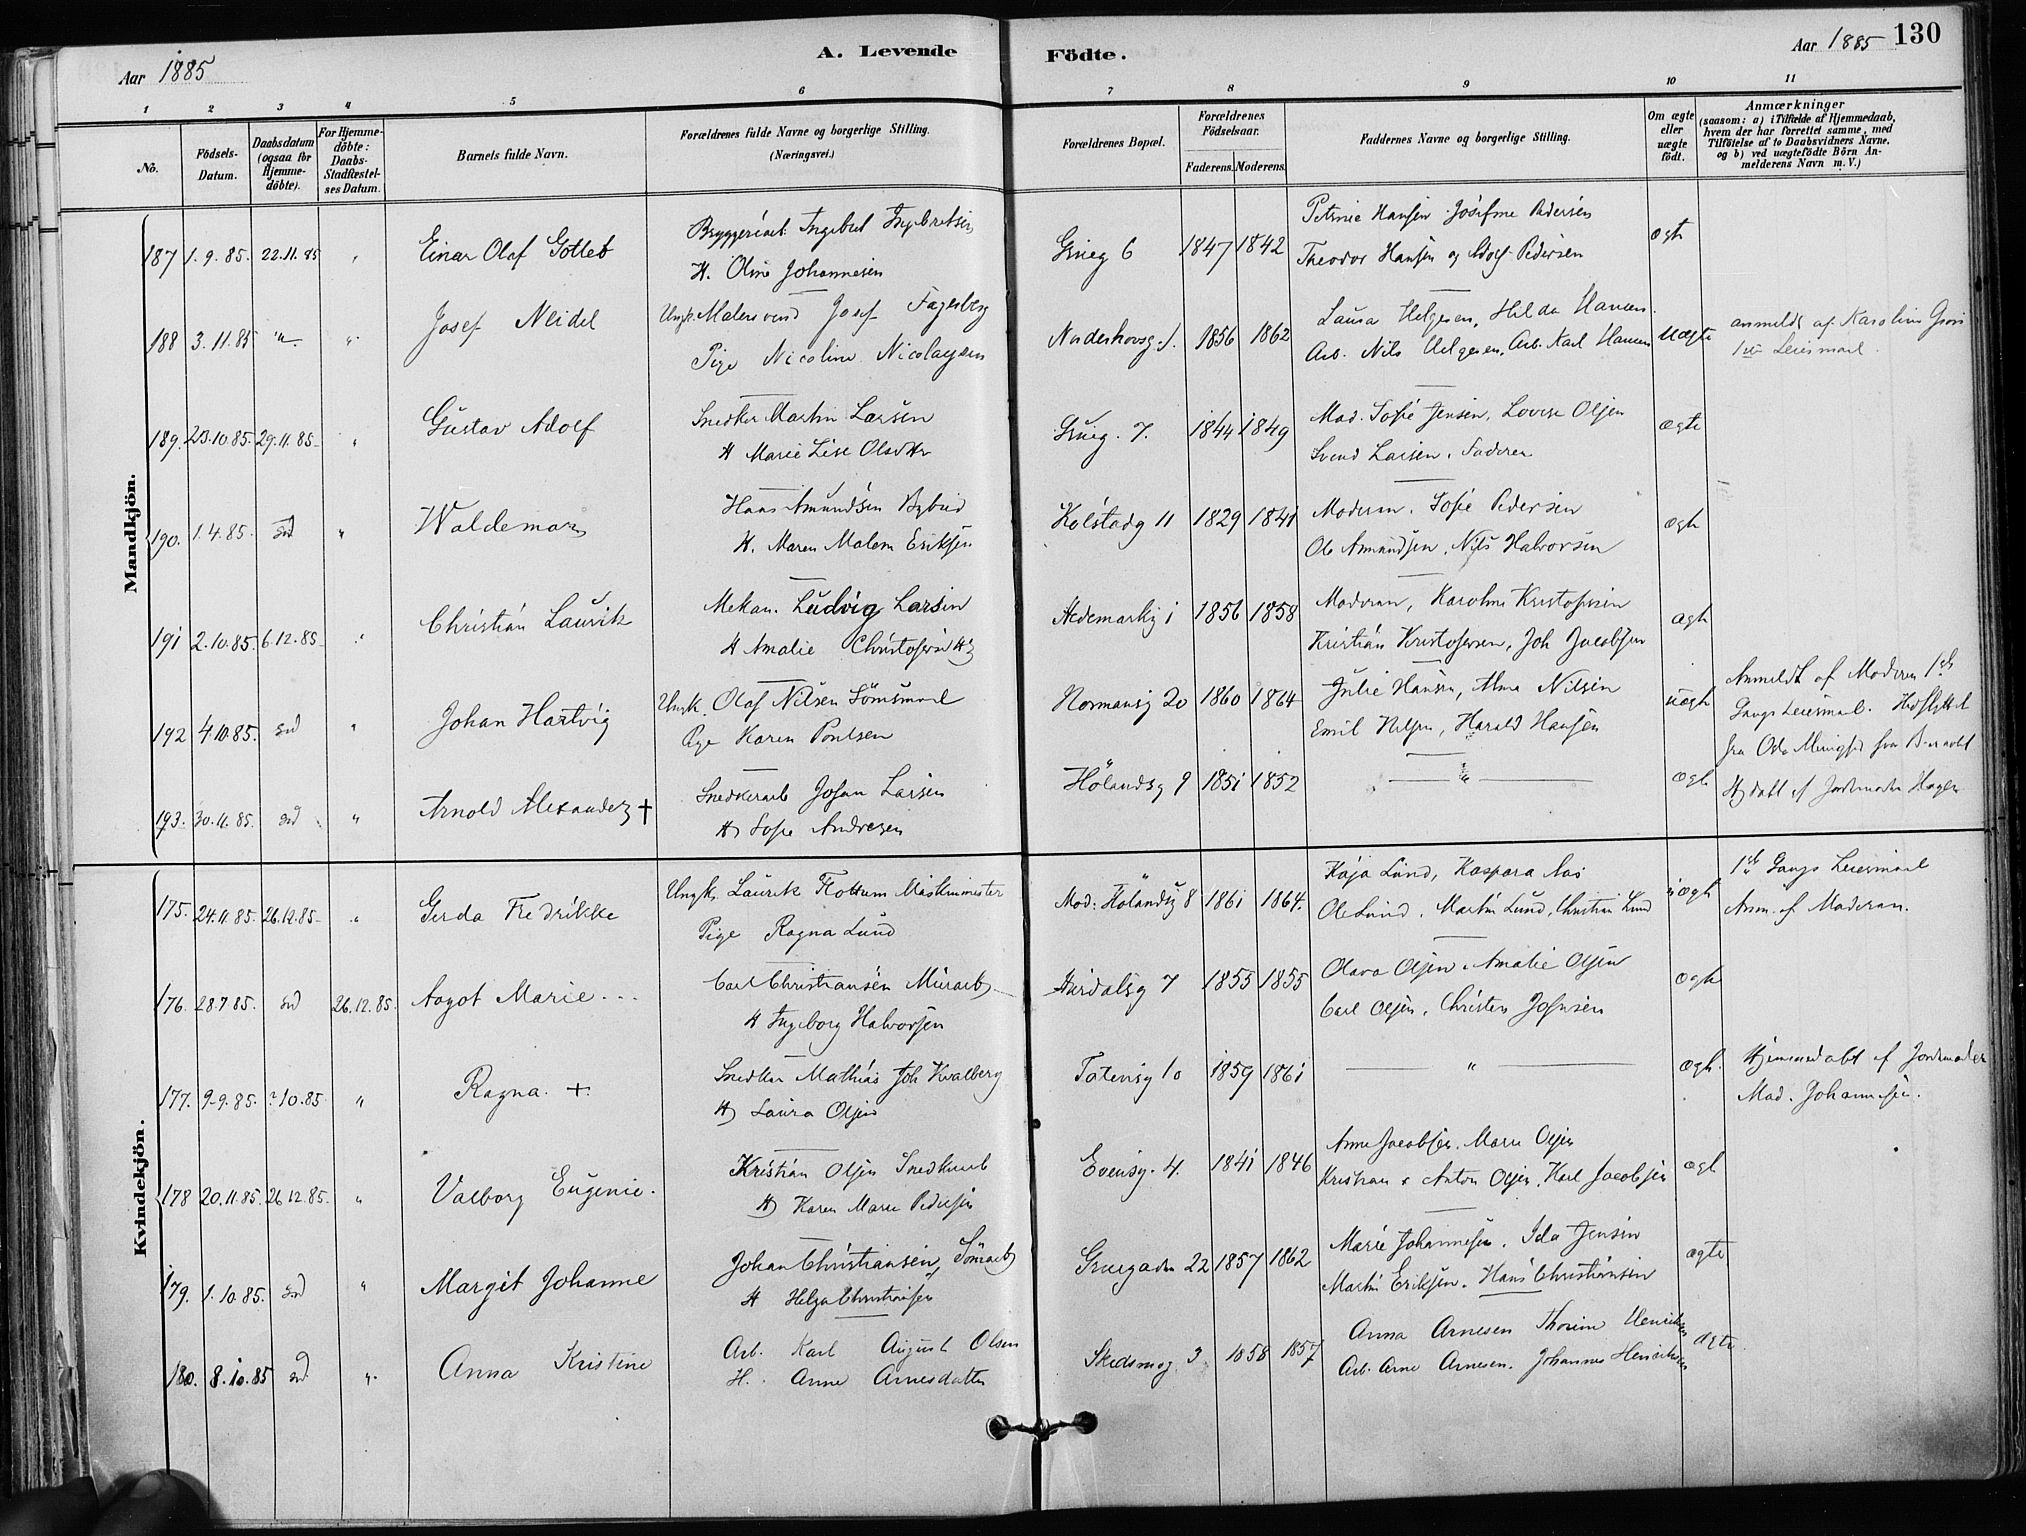 Aar 1885 A. Levende Födte. Aar 1885 130
1 2 3 4 5 6 7 8 9 10 11
No. Födsels-Datum. Daabsdatum (ogsaa for Hjemmedöbte). For Hjemmedöbte: Daabs-Stadfæstelses Datum. Barnets fulde Navn. Forældrenes fulde Navne og borgerlige Stilling. (Næringsvei.) Forældrenes Bopæl. Forældrenes Födselsaar. Faderens. Moderens. Faddernes Navne og borgerlige Stilling. Om ægte eller uægte födt. Anmærkninger (saasom: a) i Tilfælde af Hjemmedaab, hvem der har forrettet samme, med Tilföielse af to Daabsvidners Navne, og b) ved uægtefödte Börn Anmelderens Navn m. V.)
Mandkjön.
187 1.9.85. 22.11.85 " Einar Olaf Gotleb Bryggeriarb. Ingebret Ingebretsen Grueg 6 1847 1842 Petrine Hansen Josefine Pedersen ægte
H. Oline Johannesen Theodor Hansen og Adolf Pedersen
188 3.11.85 " " Josef Neidel Ungk. Malersvend Josef Fagerberg Naderhovsg. 1. 1856 1862 Laura Helgesen, Hilda Hansen uægte anmeldt af Karoline
Pige Nicoline Nicolaysen Arb. Nils Helgesen, Arb. Karl Hansen 1ste Leiermaal.
189. 23.10.85. 29.11.85. " Gustav Adolf Snedker Martin Larsen Grueg. 7. 1844 1849 Mad. Sofie Jensen, Lovise Olsen ægte
H Marie Lise Olsdtr Svend Larsen. Faderen
190. 1.4.85. sd " Waldemar Hans Amundsen Bybud Kolstadg 11 1829 1841 Moderen. Sofie Pedersen ægte
H. Maren Malene Eriksen Ole Amundsen. Nils Halvorsen
191 2.10.85. 6.12.85. " Christian Lauritz Mekan. Ludvig Larsen Hedemarkg 1 1856 1858 Moderen, Karoline Kristofersen ægte
H Amalie Christofersen Kristian Kristofersen, Joh Jacobsen
192 4.10.85. sd " Johan Hartvig Ungk. Olaf Nilsen Sömand Normansg 20 1860 1864 Julie Hansen, Alma Nilsen uægte Anmeldt af Moderen 1ste
Pige Karen Poulsen Emil Nilsen, Harald Hansen Gangs Leiermaal.
193. 30.11.85. sd " Arnold Alexander † Snedkerarb Johan Larsen Hölandsg 9 1851 1852 " ægte Hjdöbt af Jordemoder Hagen
H Sofie Andresen
Kvindekjön.
175. 24.11.85. 26.12.85. " Gerda Fredrikke Ungk. Lauritz Flottum Maskinmester Mod: Hölandsg 8 1861 1864. Kaja Lund, Kaspara Aas uægte 1ste Gangs Leiermaal
Pige Ragna Lund Ole Lund. Martin Lund, Christian Lund Anm. af Moderen.
176. 28.7.85. sd 26.12.85. Aagot Marie Carl Christiansen Murarb Hurdalsg 7 1855 1855 Olava Olsen. Amalie Olsen ægte
H Ingeborg Halvorsen Carl Olsen. Christen Johnsen
177. 9.9.85. ?10.85. " Ragna. + Snedker Mathias Joh Kvalberg Totensg 10 1859 1861 " ægte. Hjemmedöbt af Jordemoder
H Laura Olsen Mad. Johannesen.
178 20.11.85. 26.12.85. " Valborg Eugenie. Kristian Olsen Snedkerarb Evensg. 4. 1841 1846 Anne Jacobsen. Marie Olsen ægte
H Karen Marie Pedersen Kristian & Anton Olsen. Karl Jacobsen
179. 1.10.85. sd " Margit Johanne Johan Christiansen, Tömarb Gruegaden 22 1857 1862 Marie Johannesen. Ida Jensen ægte
H Helga Christiansen Martin Eriksen. Hans Christiansen
180. 8.10.85 sd " Anna Kristine Arb. Karl August Olsen Skedsmog. 3 1858 1857 Anna Arnesen Thorine Henriksen ægte
H. Anne Arnesdatter Arb. Arne Arnesen. Johannes Henriksen